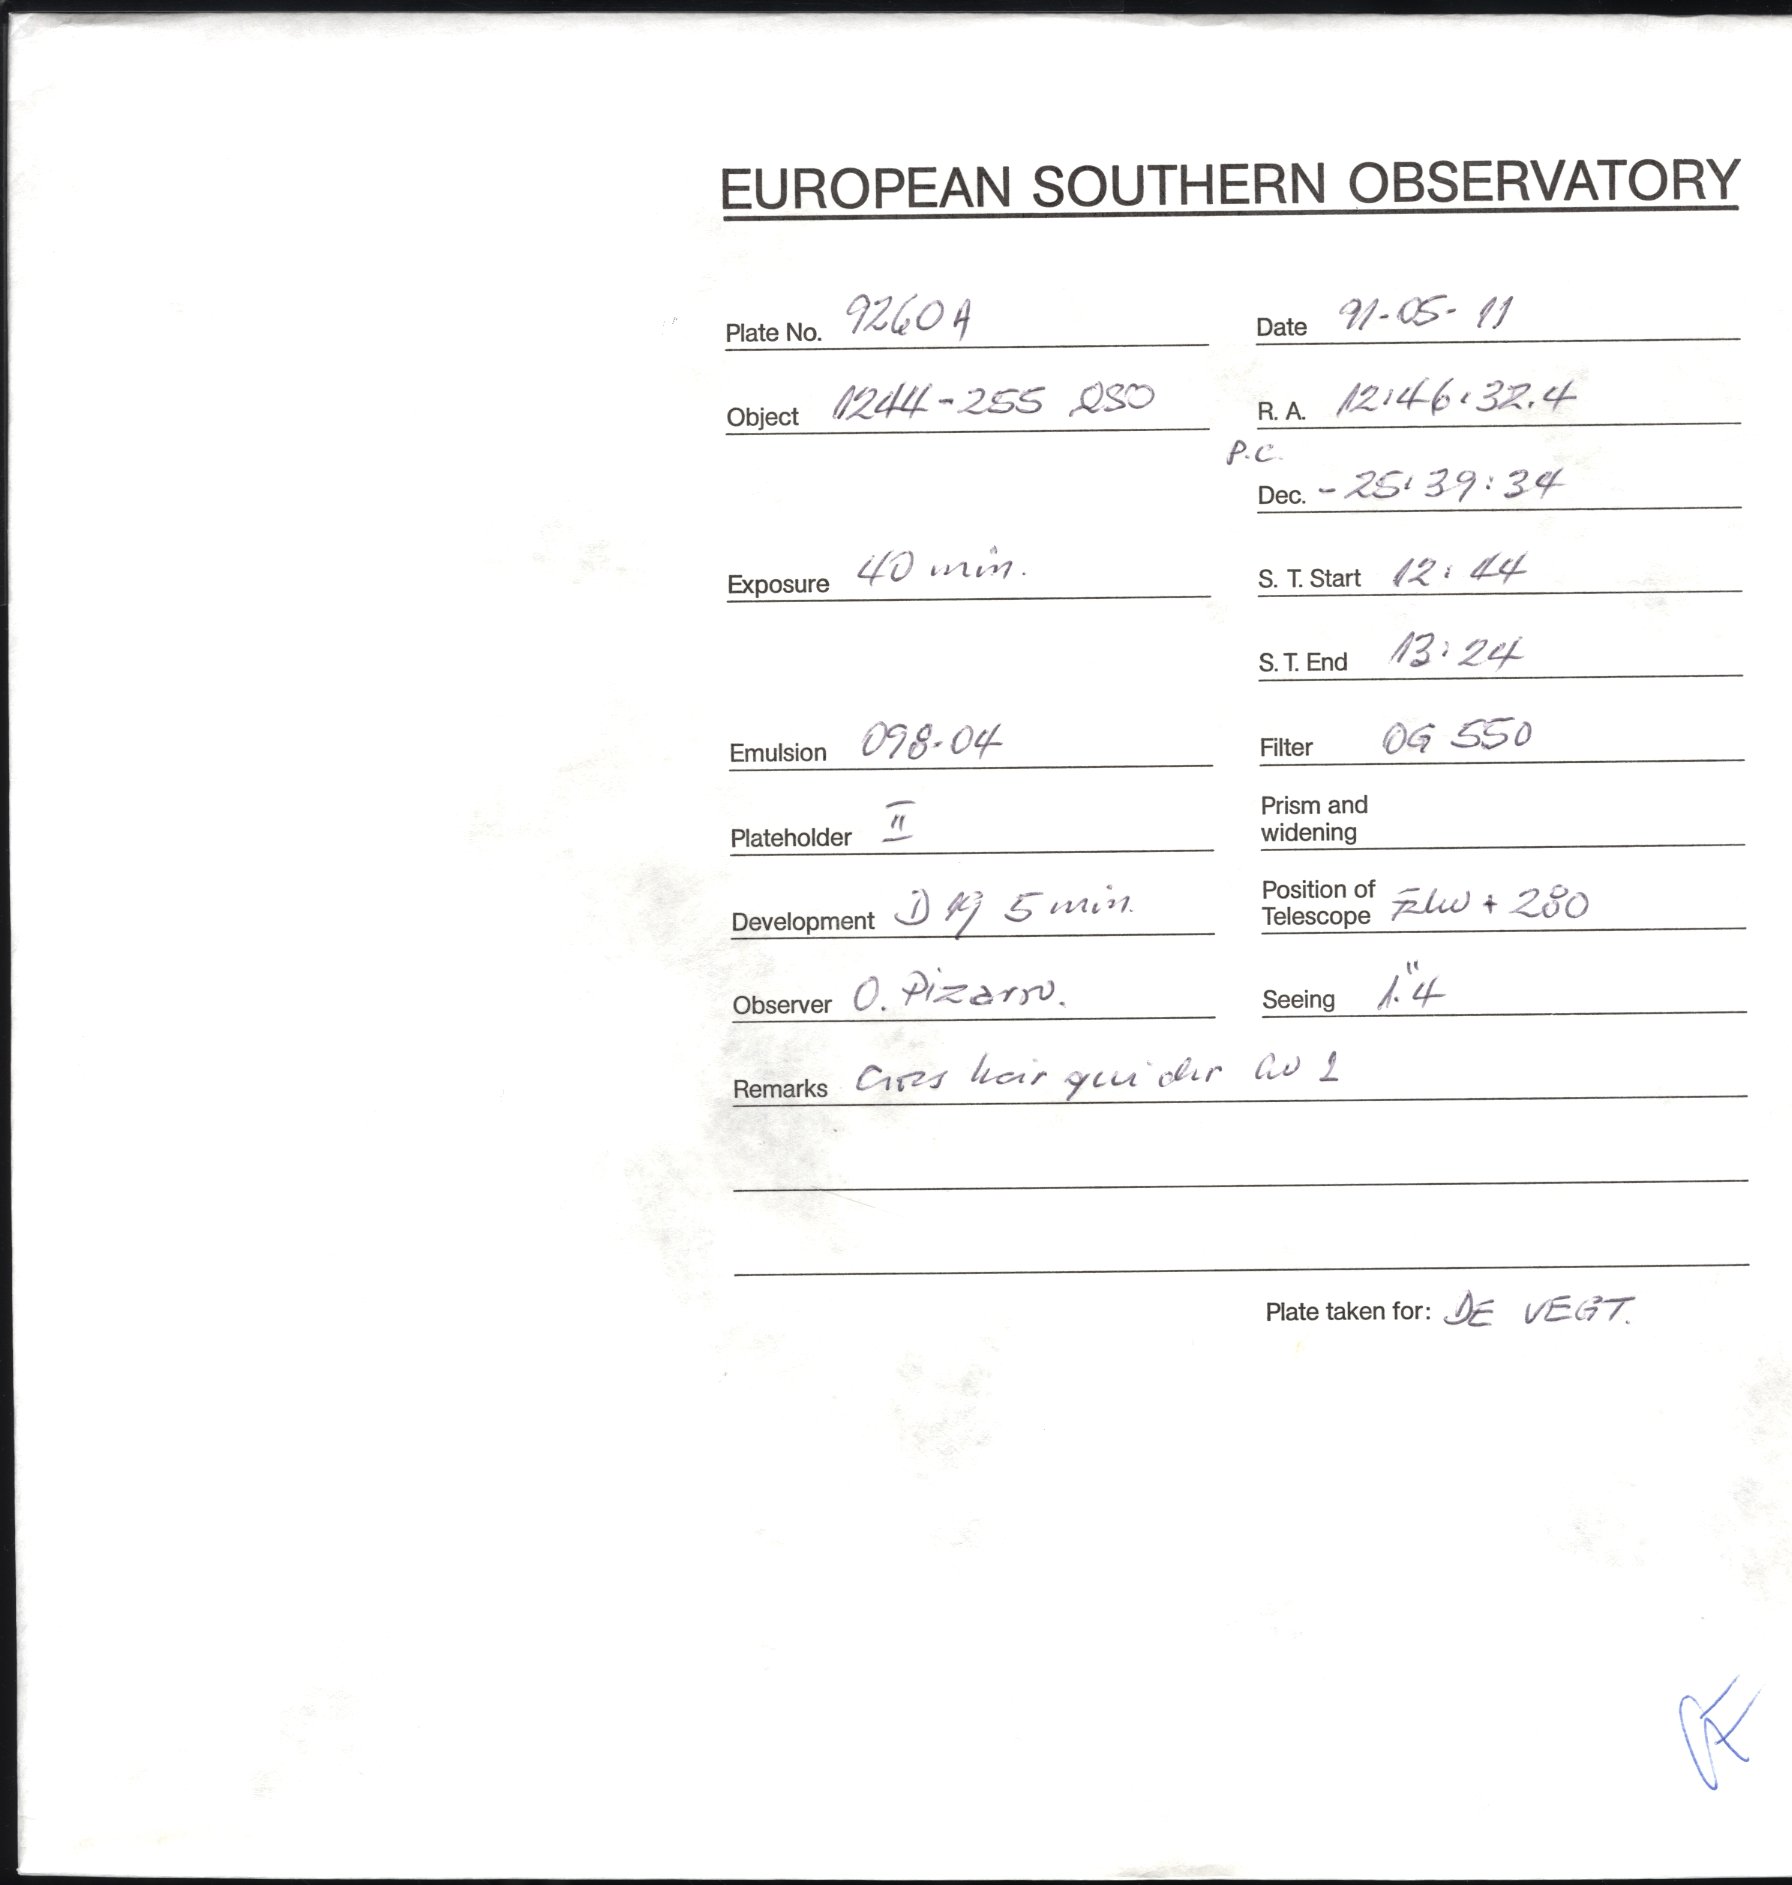 EUROPEAN SOUTHERN OBSERVATORY
Plate No. 9260A Date 91-05-11
Object 1244-255 QSO R. A. 12:46:32.4
P.C.
Dec. -25:39:34
Exposure 40 min. S. T. Start 12:44
S. T. End 13:24
Emulsion 098-04 Filter OG 550
Plateholder II Prism and
widening
Development D19 5 min. Position of
Telescope + 280
Observer O. Pizarro. Seeing 1."4
Remarks Cross hair guider
Plate taken for: DE VEGT.